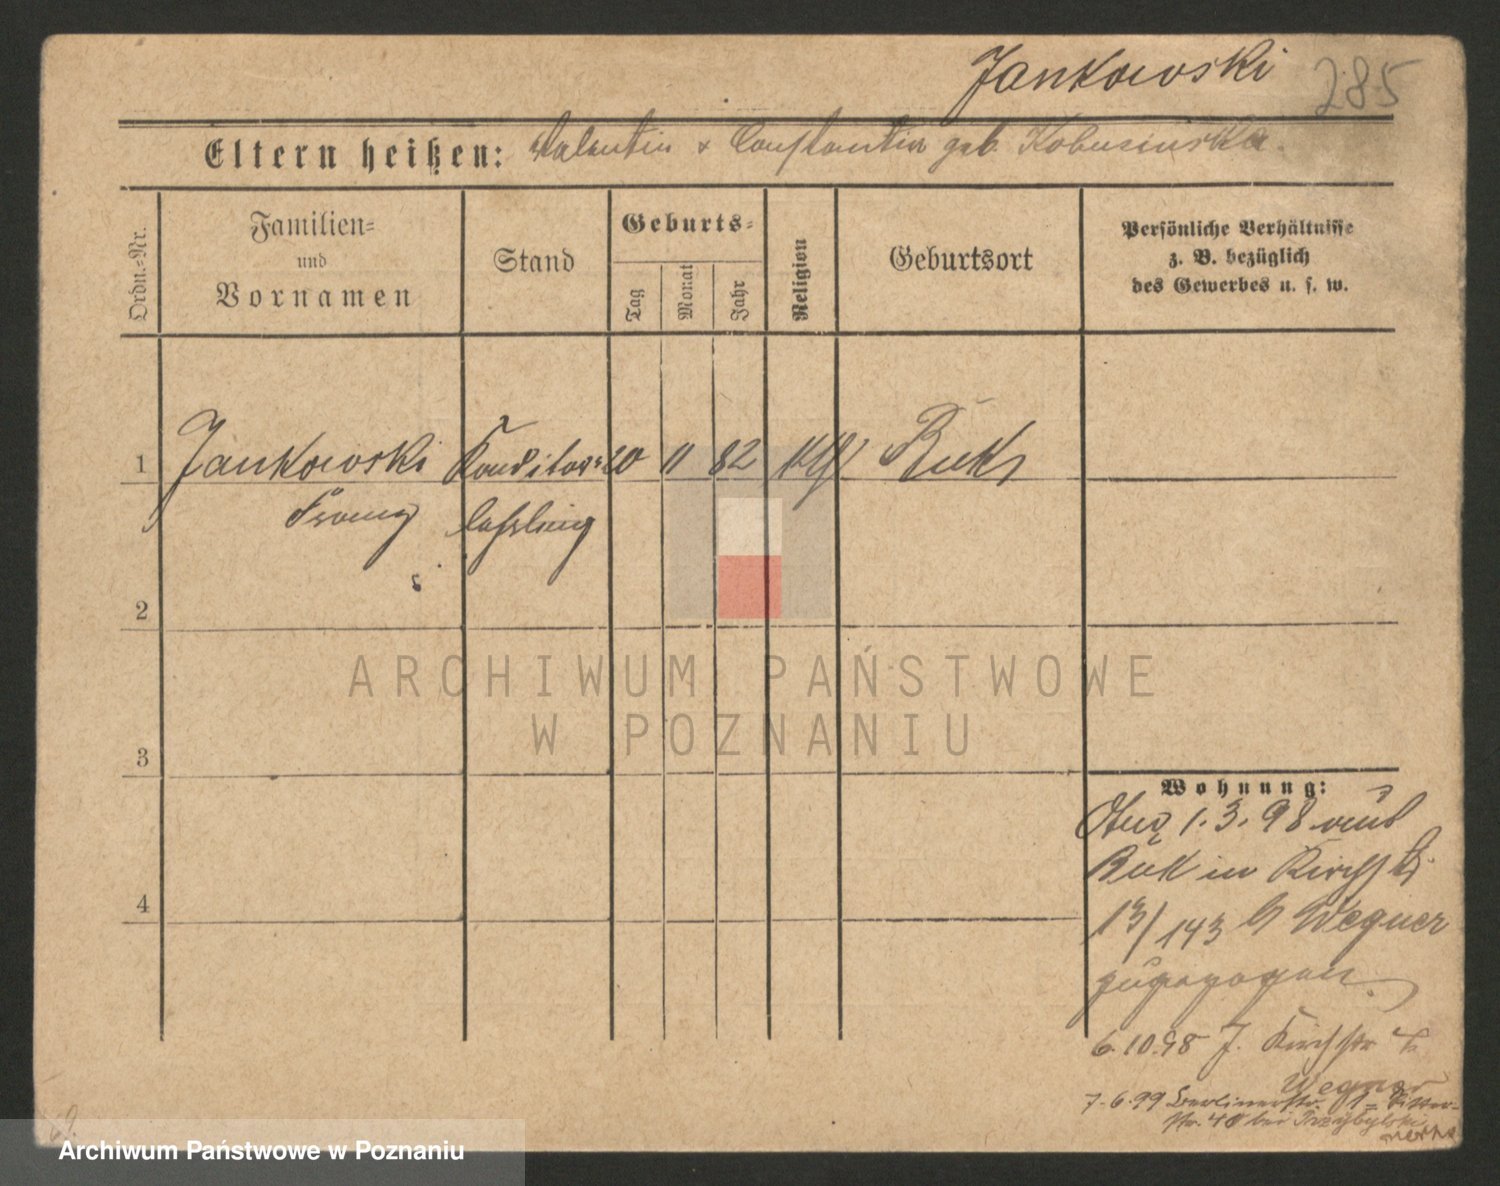 Jankowski 285
Eltern heißen: Valentin & Constantia geb. Kobusinska.
Ordn.-Nr.
Familien-
und
Vornamen
Stand
Geburts-
Tag
Monat
Jahr
Religion
Geburtsort
Persönliche Verhältnisse
z. B. bezüglich
des Gewerbes u. s. w.
1 Jankowski Konditor- 20 11 82 Buk
Franz lehrling
2
3
4
Wohnung:
1.3.98 von
Buk in Kirchstr.
13/143 b Wegner
zugezogen.
6.10.98 J. Kirchstr 4
Wegner
7.6.99 Berlinerstr.
No. 40 bei Przybylski
ARCHIWUM PAŃSTWOWE
W POZNANIU
Archiwum Państwowe w Poznaniu